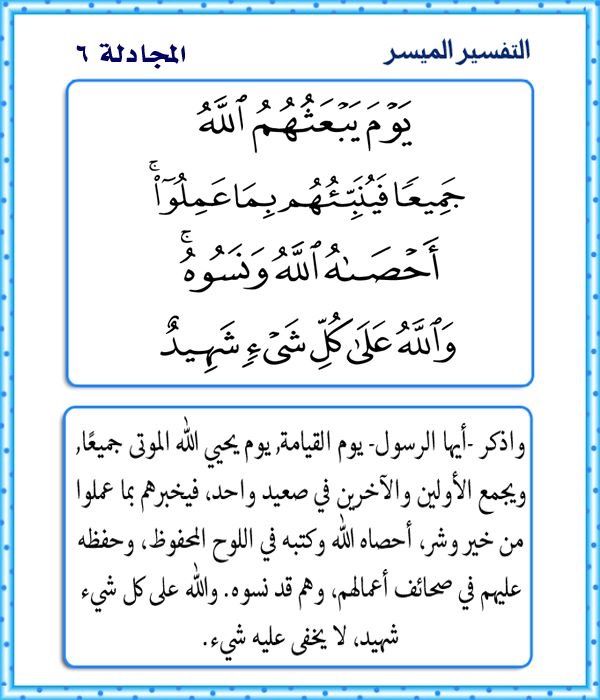 التفسير الميسر
المجادلة ٦
يَوْمَ يَبْعَثُهُمُ ٱللَّهُ
جَمِيعًا فَيُنَبِّئُهُم بِمَا عَمِلُوٓا۟ۚ
أَحْصَىٰهُ ٱللَّهُ وَنَسُوهُۚ
وَٱللَّهُ عَلَىٰ كُلِّ شَىْءٍ شَهِيدٌ
واذكر -أيها الرسول- يوم القيامة, يوم يحيي الله الموتى جميعًا,
ويجمع الأولين والآخرين في صعيد واحد، فيخبرهم بما عملوا
من خير وشر، أحصاه الله وكتبه في اللوح المحفوظ، وحفظه
عليهم في صحائف أعمالهم، وهم قد نسوه. والله على كل شيء
شهيد، لا يخفى عليه شيء.